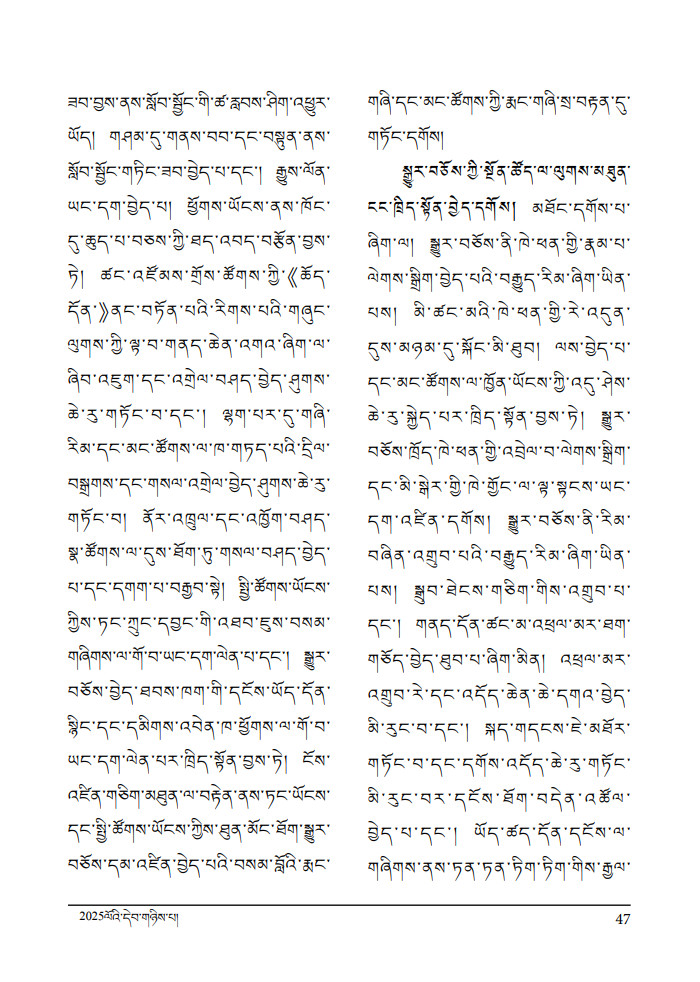 ཟབ་བྱས་ནས་སློབ་སྦྱོང་གི་ཚ་རླབས་ཤིག་འཕྱུར་
ཡོད། གཤམ་དུ་གནས་བབ་དང་བསྟུན་ནས་
སློབ་སྦྱོང་གཏིང་ཟབ་བྱེད་པ་དང་། རྒྱུས་ལོན་
ཡང་དག་བྱེད་པ། ཕྱོགས་ཡོངས་ནས་ཁོང་
དུ་ཆུད་པ་བཅས་ཀྱི་ཐད་འབད་བརྩོན་བྱས་
ཏེ། ཚང་འཛོམས་གྲོས་ཚོགས་ཀྱི་《ཆོད་
དོན་》ནང་བཏོན་པའི་རིགས་པའི་གཞུང་
ལུགས་ཀྱི་ལྟ་བ་གནད་ཆེན་འགའ་ཞིག་ལ་
ཞིབ་འཇུག་དང་འགྲེལ་བཤད་བྱེད་ཤུགས་
ཆེ་རུ་གཏོང་བ་དང་། ལྷག་པར་དུ་གཞི་
རིམ་དང་མང་ཚོགས་ལ་ཁ་གཏད་པའི་དྲིལ་
བསྒྲགས་དང་གསལ་འགྲེལ་བྱེད་ཤུགས་ཆེ་རུ་
གཏོང་བ། ནོར་འཁྲུལ་དང་འཁྱོག་བཤད་
སྣ་ཚོགས་ལ་དུས་ཐོག་ཏུ་གསལ་བཤད་བྱེད་
པ་དང་དགག་པ་བརྒྱབ་སྟེ། སྤྱི་ཚོགས་ཡོངས་
ཀྱིས་ཏང་ཀྲུང་དབྱང་གི་འཐབ་ཇུས་བསམ་
གཞིགས་ལ་གོ་བ་ཡང་དག་ལེན་པ་དང་། སྒྱུར་
བཅོས་བྱེད་ཐབས་ཁག་གི་དངོས་ཡོད་དོན་
སྙིང་དང་དམིགས་འབེན་ཁ་ཕྱོགས་ལ་གོ་བ་
ཡང་དག་ལེན་པར་ཁྲིད་སྟོན་བྱས་ཏེ། ངོས་
འཛིན་གཅིག་མཐུན་ལ་བརྟེན་ནས་ཏང་ཡོངས་
དང་སྤྱི་ཚོགས་ཡོངས་ཀྱིས་ཐུན་མོང་ཐོག་སྒྱུར་
བཅོས་དམ་འཛིན་བྱེད་པའི་བསམ་བློའི་རྨང་
གཞི་དང་མང་ཚོགས་ཀྱི་རྨང་གཞི་སྲ་བརྟན་དུ་
གཏོང་དགོས།
སྒྱུར་བཅོས་ཀྱི་སྔོན་ཚོད་ལ་ལུགས་མཐུན་
ངང་ཁྲིད་སྟོན་བྱེད་དགོས། མཐོང་དགོས་པ་
ཞིག་ལ། སྒྱུར་བཅོས་ནི་ཁེ་ཕན་གྱི་རྣམ་པ་
ལེགས་སྒྲིག་བྱེད་པའི་བརྒྱུད་རིམ་ཞིག་ཡིན་
པས། མི་ཚང་མའི་ཁེ་ཕན་གྱི་རེ་འདུན་
དུས་མཉམ་དུ་སྐོང་མི་ཐུབ། ལས་བྱེད་པ་
དང་མང་ཚོགས་ལ་ཁྱོན་ཡོངས་ཀྱི་འདུ་ཤེས་
ཆེ་རུ་སྐྱེད་པར་ཁྲིད་སྟོན་བྱས་ཏེ། སྒྱུར་
བཅོས་ཁྲོད་ཁེ་ཕན་གྱི་འབྲེལ་བ་ལེགས་སྒྲིག་
དང་མི་སྒེར་གྱི་ཁེ་གྱོང་ལ་ལྟ་སྟངས་ཡང་
དག་འཛིན་དགོས། སྒྱུར་བཅོས་ནི་རིམ་
བཞིན་འགྲུབ་པའི་བརྒྱུད་རིམ་ཞིག་ཡིན་
པས། སྒྲུབ་ཐེངས་གཅིག་གིས་འགྲུབ་པ་
དང་། གནད་དོན་ཚང་མ་འཕྲལ་མར་ཐག་
གཅོད་བྱེད་ཐུབ་པ་ཞིག་མིན། འཕྲལ་མར་
འགྲུབ་རེ་དང་འདོད་ཆེན་ཆེ་དགའ་བྱེད་
མི་རུང་བ་དང་། སྐད་གདངས་ཇེ་མཐོར་
གཏོང་བ་དང་དགོས་འདོད་ཆེ་རུ་གཏོང་
མི་རུང་བར་དངོས་ཐོག་བདེན་འཚོལ་
བྱེད་པ་དང་། ཡོད་ཚད་དོན་དངོས་ལ་
གཞིགས་ནས་ཏན་ཏན་ཏིག་ཏིག་གིས་རྒྱལ་
2025ལོའི་དེབ་གཉིས་པ།
47